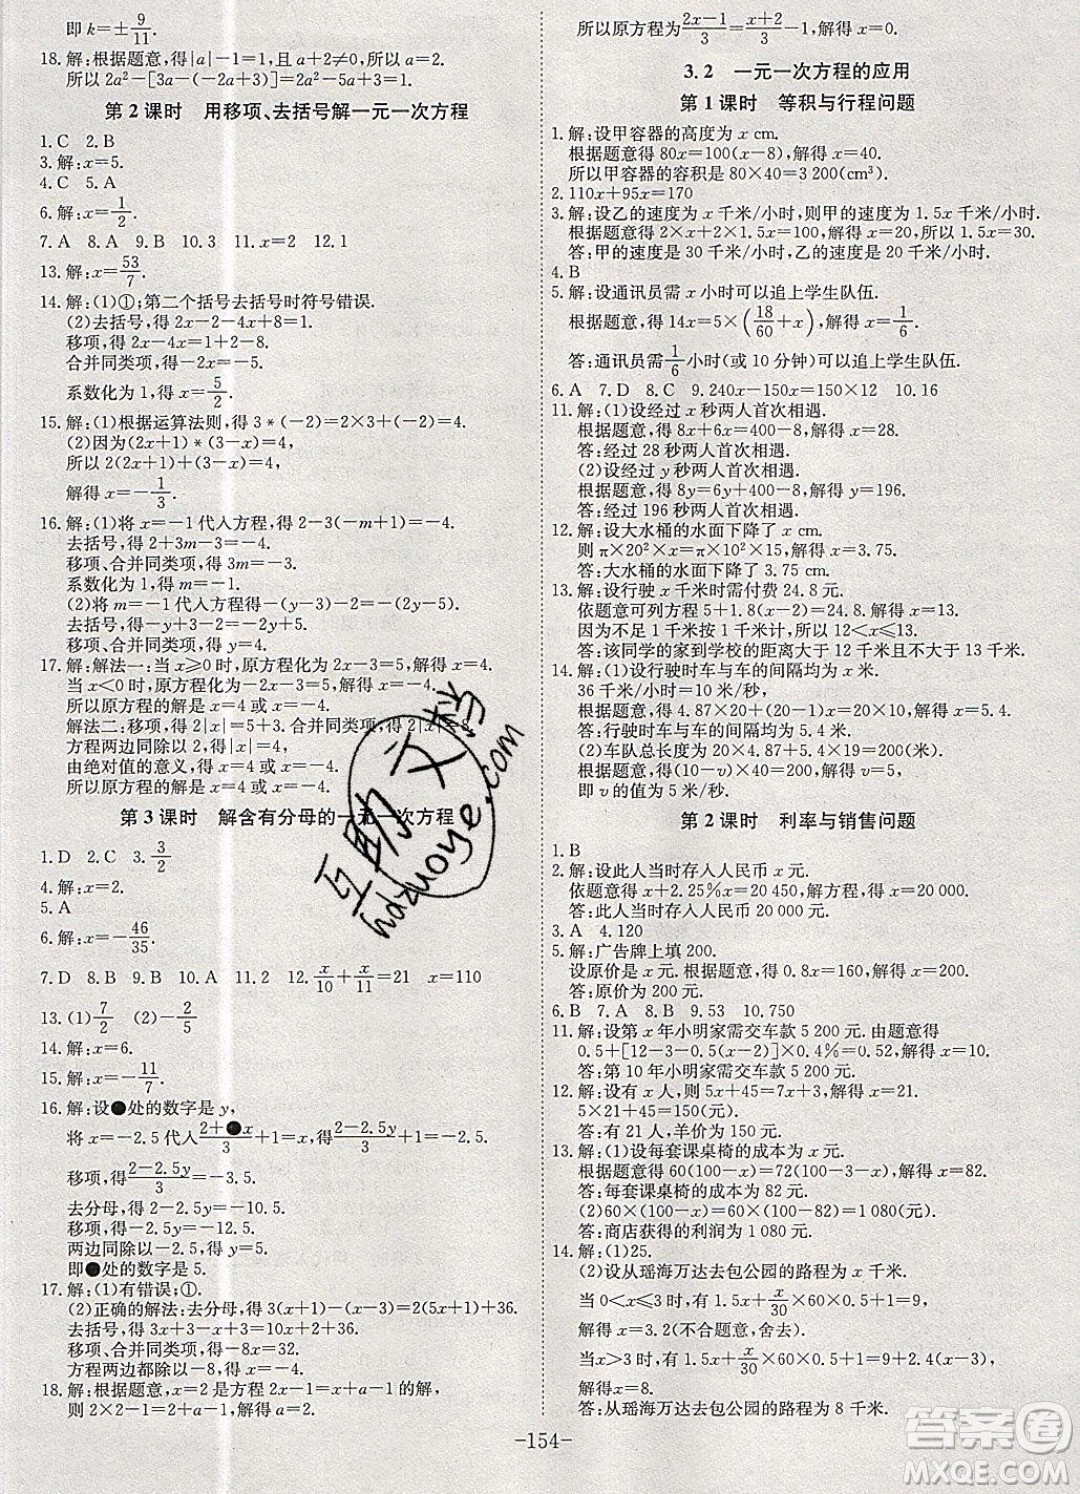 即 k=±9/11.
18. 解:根据题意,得|a|-1=1,且 a+2≠0,所以 a=2.
所以 2a²-[3a-(-2a+3)]=2a²-5a+3=1.
第 2 课时 用移项、去括号解一元一次方程
1. C 2. B
3. 解:x=5.
4. C 5. A
6. 解:x=1/2.
7. A 8. A 9. B 10. 3 11. x=2 12. 1
13. 解:x=53/7.
14. 解:(1)①;第二个括号去括号时符号错误.
(2)去括号,得 2x-2-4x+8=1.
移项,得 2x-4x=1+2-8.
合并同类项,得-2x=-5.
系数化为 1,得 x=5/2.
15. 解:(1)根据运算法则,得 3*(-2)=2×3+(-2)=4.
(2)因为(2x+1)*(3-x)=4,
所以 2(2x+1)+(3-x)=4,
解得 x=-1/3.
16. 解:(1)将 x=-1代入方程,得 2-3(-m+1)=-4.
去括号,得 2+3m-3=-4.
移项、合并同类项,得 3m=-3.
系数化为 1,得 m=-1.
(2)将 m=-1代入方程得-(y-3)-2=-4.
去括号,得-y+3-2=-4.
移项、合并同类项,得-y=-5.
17. 解:解法一:当 x≥0时,原方程化为
当 x<0时,原方程化为
所以原方程的解是 x=4或 x=-4.
解法二:移项,得 2|x|=5+3.合并同类项,得2|x|=8.
方程两边同除以 2,得|x|=4.
由绝对值的意义,得 x=4或 x=-4.
所以原方程的解是 x=4或 x=-4.
第 3 课时 解含有分母的一元一次方程
1. D 2. C 3. 3/2
4. 解:x=2.
5. A
6. 解:x=-46/35.
7. D 8. B 9. B 10. A 11. 2 12. x/10+x/11=21 x=110
13. (1)7/2 (2)-2/5
14. 解:x=6.
15. 解:x=-11/7.
16. 解:设●处的数字是 y,
将 x=-2.5代入(2+●x)/3+1=x,得(2-2.5y)/3+1=-2.5.
移项,得(2-2.5y)/3=-3.5.
去分母,得 2-2.5y=-10.5.
移项,得-2.5y=-12.5.
两边同除以-2.5,得 y=5.
即●处的数字是 5.
17. 解:(1)有错误;①.
(2)正确的解法:去分母,得 3(x+1)=2(5x+1)+36.
去括号,得 3x+3=10x+2+36.
移项、合并同类项,得-8x=32.
方程两边都除以-8,得 x=-4.
18. 解:根据题意,x=2是方程 2x-1=x+a-1的解,
则 2×2-1=2+a-1,解得 a=2.
所以原方程为(2x-1)/3=(x+2)/3-1,解得 x=0.
3.2 一元一次方程的应用
第 1 课时 等积与行程问题
1. 解:设甲容器的高度为 x cm.
根据题意得 80x=100(x-8),解得 x=40.
所以甲容器的容积是 80×40=3 200(cm³).
2. 110x+95x=170
3. 解:设乙的速度为 x 千米/小时,则甲的速度为 1.5x千米/小时.
根据题意得 2×x+2×1.5x=100,解得 x=20,所以1.5x=30.
答:甲的速度是 30 千米/小时,乙的速度是 20 千米/小时.
4. B
5. 解:设通讯员需 x 小时可以追上学生队伍.
根据题意,得 14x=5×(18/60+x),解得 x=1/6.
答:通讯员需1/6小时(或 10 分钟)可以追上学生队伍.
6. A 7. D 8. C 9. 240x-150x=150×12 10. 16
11. 解:(1)设经过 x 秒两人首次相遇.
根据题意,得 8x+6x=400-8,解得 x=28.
答:经过 28 秒两人首次相遇.
(2)设经过 y 秒两人首次相遇.
根据题意,得 8y=6y+400-8,解得 y=196.
答:经过 196 秒两人首次相遇.
12. 解:设大水桶的水面下降了 x cm.
则 π×20²×x=π×10²×15,解得 x=3.75.
答:大水桶的水面下降了 3.75 cm.
13. 解:设行驶 x 千米时需付费 24.8 元.
依题意可列方程 5+1.8(x-2)=24.8.解得 x=13.
因为不足 1 千米按 1 千米计,所以 12<x≤13.
答:该同学的家到学校的距离大于 12 千米,不大于 13 千米.
14. 解:(1)设行驶时车与车的间隔均为 x 米.
36 千米/小时=10 米/秒,
根据题意,得 4.87×20+(20-1)x=20×10,解得 x=5.4.
答:行驶时车与车的间隔均为 5.4 米.
(2)车队总长度为 20×4.87+5.4×19=200(米).
根据题意,得(10-v)×40=200,解得 v=5,
即 v 的值为 5 米/秒.
第 2 课时 利率与销售问题
1. B
2. 解:设此人当时存入人民币 x 元.
依题意得 x+2.25%x=20 450,解方程,得 x=20 000.
答:此人当时存入人民币 20 000 元.
3. A 4. 120
5. 解:广告牌上填 200.
设原价是 x 元.根据题意,得 0.8x=160,解得 x=200.
答:原价为 200 元.
6. B 7. A 8. B 9. 53 10. 750
11. 解:设第 x 年小明家需交车款 5 200 元.由题意得
0.5+[12-3-0.5(x-2)]×0.4%=0.52,解得 x=10.
答:第 10 年小明家需交车款 5 200 元.
12. 解:设有 x 人,则 5x+45=7x+3,解得 x=21.
5×21+45=150(元).
答:有 21 人,羊价为 150 元.
13. 解:(1)设每套课桌椅的成本为 x 元.
根据题意得 60(100-x)=72(100-3-x),解得 x=82.
答:每套课桌椅的成本为 82 元.
(2)60×(100-x)=60×(100-82)=1 080(元).
答:商店获得的利润为 1 080 元.
14. 解:(1)25.
(2)设从瑶海万达去包公园的路程为 x 千米.
当 0<x≤3时,1.2x+x/30×60×0.6=9+
解得 x=3.2(不合题意,舍去).
当x>3时,1.2x+x/30×60×0.6=9+(x-3)×
解得x=8.
答:从瑶海万达去包公园的路程为 8 千米.
-154-
互助文档
hdzuoye.com
答案圈
MXQE.COM